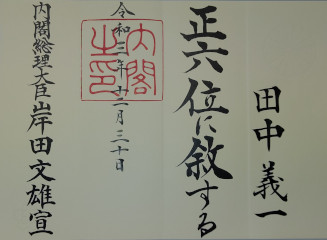 田中義一
正六位に敘する
令和三年十二月三十日
内閣之印
内閣総理大臣岸田文雄宣